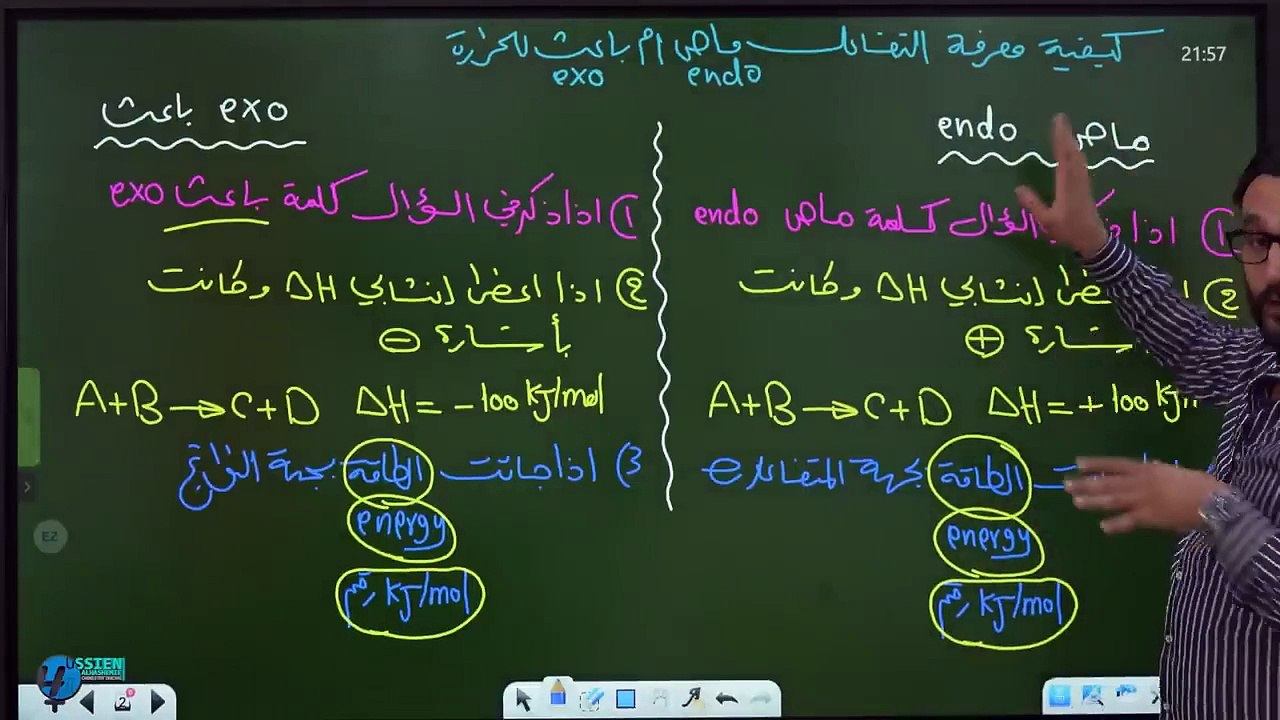 كيفية معرفة التفاعل ماص ام باعث للحرارة
endo exo
21:57
ماص endo
1) اذا السؤال كلمة ماص endo
2) انثالبي ΔH وكانت
بأشارة ⊕
A+B → C+D ΔH = +100 KJ
الطاقة بجهة المتفاعلات
energy
رقم, KJ/mol
exo باعث
1) اذا ذكر في السؤال كلمة باعث exo
2) اذا اعطى انثالبي ΔH وكانت
بأشارة ⊖
A+B → C+D ΔH = -100 KJ/mol
3) اذا جائت الطاقة بجهة النواتج
energy
رقم, KJ/mol
EZ
USSIEN
ALHASHEMIE
2